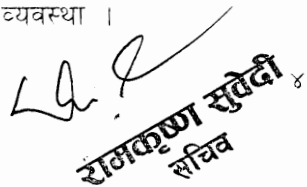 व्यवस्था ।
रामकृष्ण सुवेदी
सचिव
४